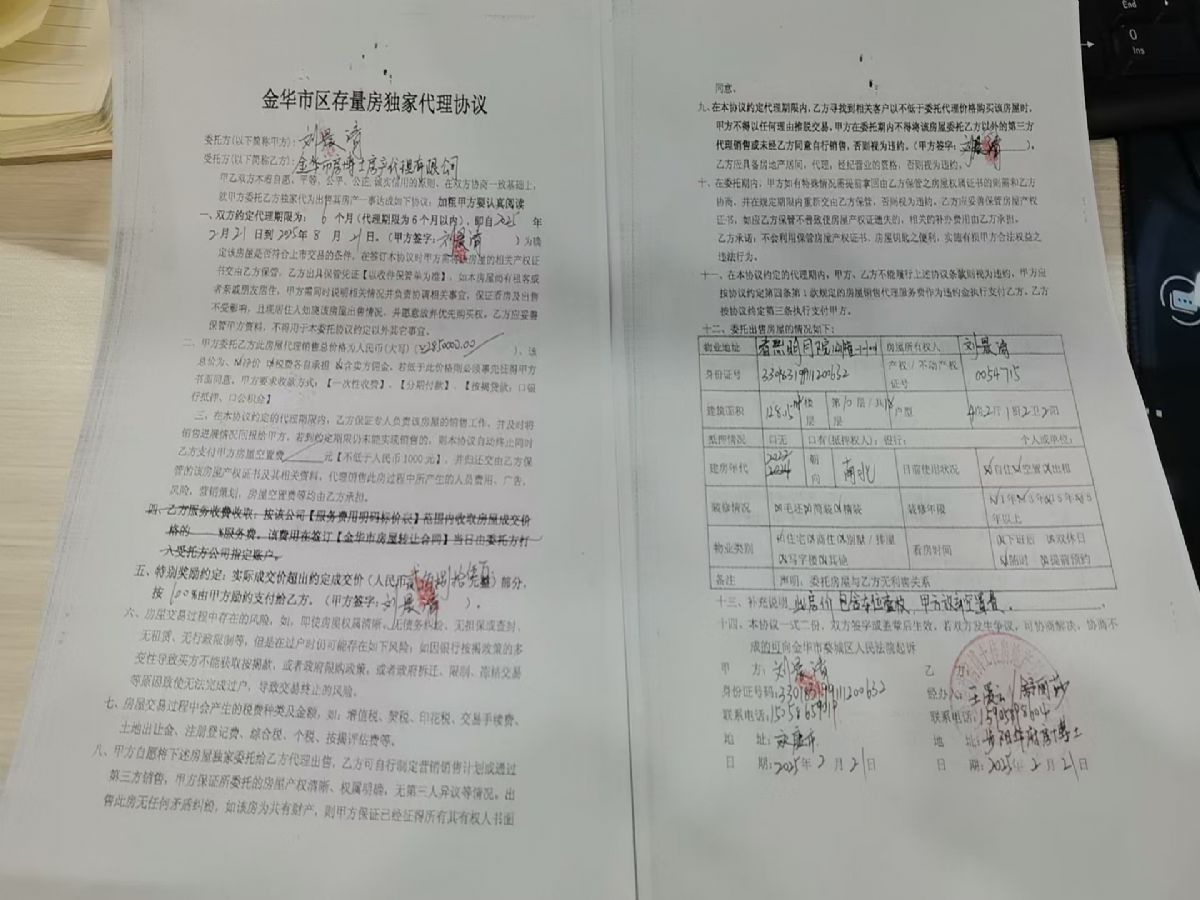 金华市区存量房独家代理协议
委托方(以下简称甲方)：刘景清
受托方(以下简称乙方)：金华市房博士房产代理有限公司
甲乙双方本着自愿、平等、公平、公正、诚实信用的原则，在双方协商一致基础上，
就甲方委托乙方独家代为出售其房产一事达成如下协议：加黑甲方要认真阅读
一、双方约定代理期限为：6 个月(代理期限为6个月以内)，即自2025 年
2月21日到2025年8月21日。(甲方签字：刘景清)为确
定该房屋是否符合上市交易的条件，在签订本协议时甲方需将该房屋的相关产权证
书交由乙方保管，乙方出具保管凭证【以收件保管单为准】，如本房屋尚有租客或
者亲戚朋友居住，甲方需同时说明相关情况并负责协调相关事宜，保证看房及出售
不受影响，且现居住人知晓该房屋出售情况，并愿意放弃优先购买权。乙方应妥善
保管甲方资料，不得用于本委托协议约定以外其它事宜。
二、甲方委托乙方此房屋代理销售总价格为人民币(大写)(2850000.00)，该
总价为、净价 税费各自承担 含卖方佣金，若低于此价格则必须事先征得甲方
书面同意。甲方要求收款方式：【一次性收费】、【分期付款】、【按揭贷款：口银
行抵押、口公积金】
三、在本协议约定的代理期限内，乙方保证专人负责该房屋的销售工作，并及时将
销售进展情况回报给甲方，若到约定期限仍未能实现销售的，则本协议自动终止同时
乙方支付甲方房屋空置费 元【不低于人民币1000元】，并归还交由乙方保
管的该房屋产权证书及其相关资料，代理销售此房过程中所产生的人员费用、广告、
风险，营销策划，房屋空置费等均由乙方承担。
四、乙方服务收费收取：按该公司【服务费用明码标价表】范围内收取房屋成交价
格的 %服务费，该费用在签订【金华市房屋转让合同】当日由委托方打
入受托方公司指定账户。
五、特别奖励约定：实际成交价超出约定成交价(人民币贰佰捌拾伍万整)部分，
按100%由甲方励约支付给乙方。(甲方签字：刘景清)。
六、房屋交易过程中存在的风险，如，即使房屋权属清晰、无债务纠纷、无担保或查封、
无租赁、无行政限制等，但是在过户时仍可能存在如下风险；如因银行按揭政策的多
变性导致买方不能获取按揭款，或者政府限购政策，或者政府拆迁、限制、冻结交易
等原因致使无法完成过户，导致交易终止的风险。
七、房屋交易过程中会产生的税费种类及金额，如；增值税、契税、印花税、交易手续费、
土地出让金、注册登记费、综合税、个税、按揭评估费等。
八、甲方自愿将下述房屋独家委托给乙方代理出售，乙方可自行制定营销销售计划或通过
第三方销售，甲方保证所委托的房屋产权清晰、权属明确，无第三人异议等情况。出
售此房无任何矛盾纠纷，如该房为共有财产，则甲方保证已经征得所有其有权人书面
同意。
九、在本协议约定代理期限内，乙方寻找到相关客户以不低于委托代理价格购买该房屋时，
甲方不得以任何理由推脱交易，甲方在委托期内不得将该房屋委托乙方以外的第三方
代理销售或未经乙方同意自行销售，否则视为违约。(甲方签字：刘景清)。
乙方应具备房地产居间，代理，经纪营业的资格，否则视为违约。
十、在委托期内，甲方如有特殊情况需提前拿回由乙方保管之房屋权属证书的则需和乙方
协商，并在规定期限内重新交由乙方保管，否则视为违约。乙方应妥善保管房屋产权
证书，如应乙方保管不善致使房屋产权证遗失的，相关的补办费用由乙方承担。
乙方承诺：不会利用保管房屋产权证书、房屋钥匙之便利，实施有损甲方合法权益之
违法行为。
十一、在本协议约定的代理期内，甲方、乙方不能履行上述协议条款则视为违约。甲方应
按协议约定第四条第1款规定的房屋销售代理服务费作为违约金执行支付乙方，乙方
按协议约定第三条执行支付甲方。
十二、委托出售房屋的情况如下：
物业地址 房屋所有权人 刘景清
身份证号 产权/不动产权证号 0054715
建筑面积 128.15 楼层 第10层/共18层 户型 4房2厅1厨2卫2阳
抵押情况 口无 口有(抵押权人)：银行： 个人或单位：
建房年代 2022 2024 朝向 南北 目前使用状况 自住 空置 出租
装修情况 毛坯 简装 精装 装修年限 1年 3年 5年 5年以上
物业类别 住宅 商住 别墅/排屋 写字楼 其他 看房时间 下班后 双休日 随时 提前预约
备注 声明：委托房屋与乙方无利害关系
十三、补充说明，此总价包含车位产权，甲方放弃空置费。
十四、本协议一式二份，双方签字或盖章后生效，若双方发生争议，可协商解决，协商不
成的可向金华市婺城区人民法院起诉
甲 方：刘景清 乙
身份证号码： 经办人：
联系电话： 联系电话：15905898604
地 址： 地 址：
日 期：2025年2月21日 日 期：2025年2月21日
End
0
Ins